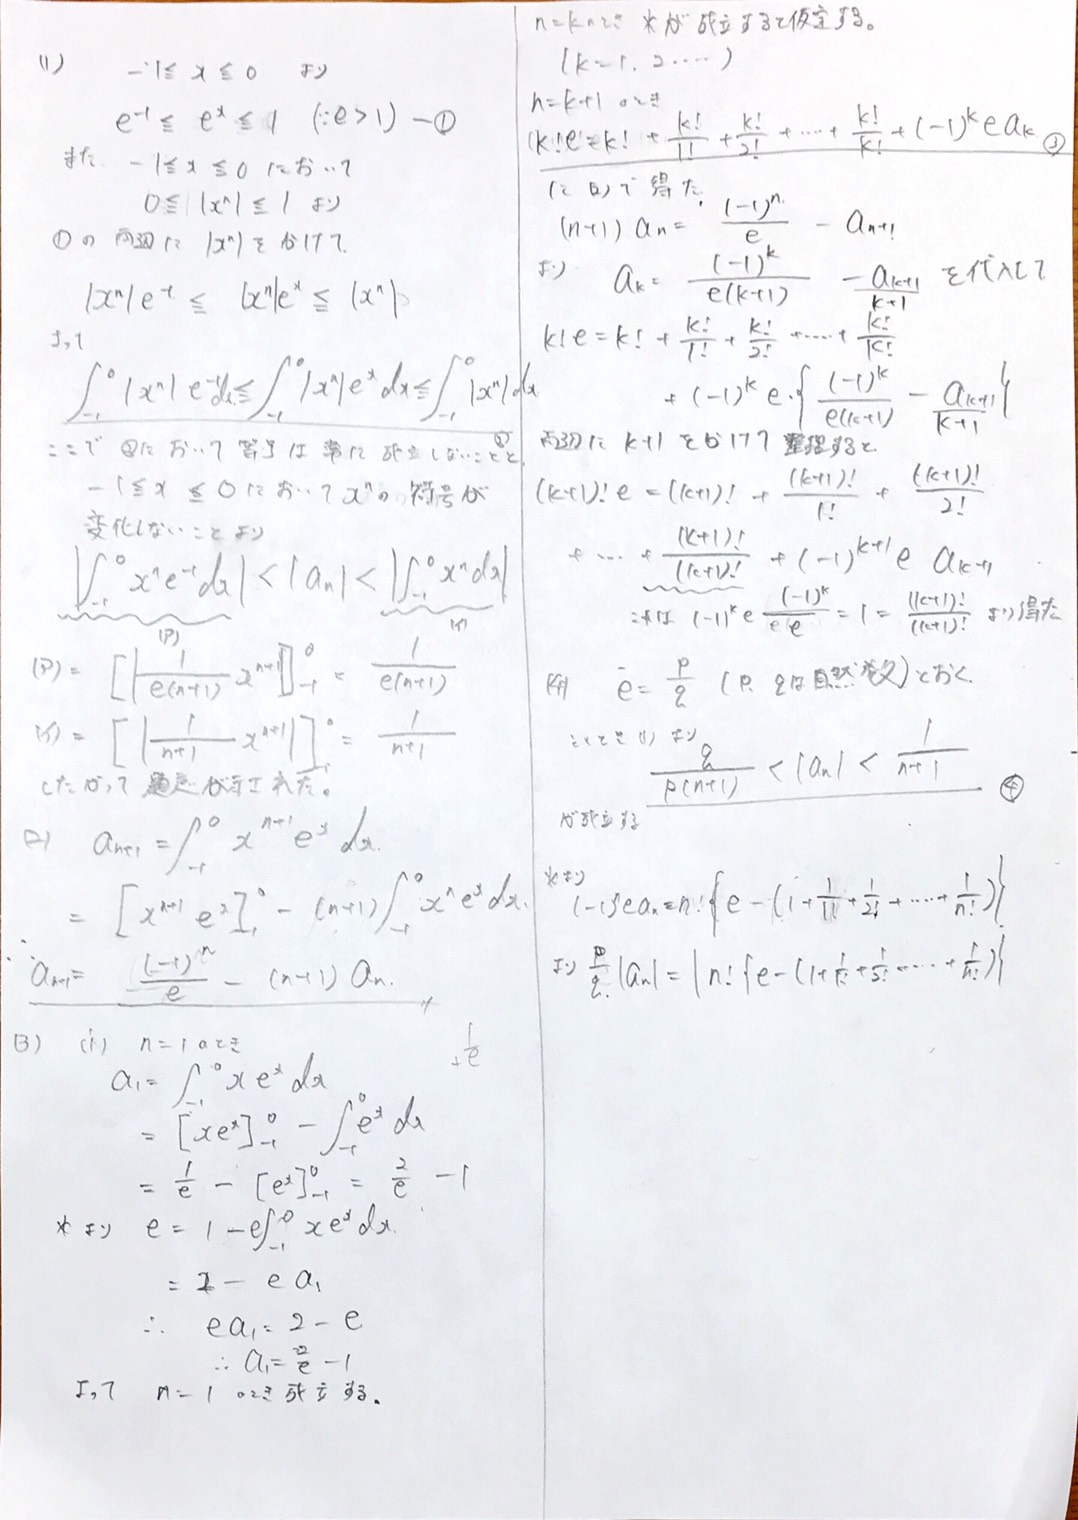 (1) -1≦x≦0 より
e⁻¹≦eˣ≦1 (∵e>1) -①
また -1≦x≦0 において
0≦|xⁿ|≦1 より
①の両辺に|xⁿ|をかけて
|xⁿ|e⁻¹≦|xⁿ|eˣ≦|xⁿ|
よって
∫₋₁⁰|xⁿ|e⁻¹dx≦∫₋₁⁰|xⁿ|eˣdx≦∫₋₁⁰|xⁿ|dx ②
ここで②において等号は常に成立しないことと
-1≦x≦0においてxⁿの符号が
変化しないことより
|∫₋₁⁰xⁿe⁻¹dx|<|aₙ|<|∫₋₁⁰xⁿdx|
(ア) (イ)
(ア)=[|1/e(n+1) xⁿ⁺¹|]₋₁⁰=1/e(n+1)
(イ)=[|1/n+1 xⁿ⁺¹|]₋₁⁰=1/n+1
したがって題意が示された。
(2) aₙ₊₁=∫₋₁⁰xⁿ⁺¹eˣdx.
=[xⁿ⁺¹eˣ]₋₁⁰-(n+1)∫₋₁⁰xⁿeˣdx.
∴aₙ₊₁=(-1)ⁿ/e-(n+1)aₙ.
(3) (i) n=1のとき
+1/e
a₁=∫₋₁⁰xeˣdx
=[xeˣ]₋₁⁰-∫₋₁⁰eˣdx
=1/e-[eˣ]₋₁⁰=2/e-1
※より e=1-e∫₋₁⁰xeˣdx.
=2-ea₁
∴ ea₁=2-e
∴a₁=2/e-1
よって n=1のとき成立する。
n=kのとき ※が成立すると仮定する。
(k=1,2‥‥)
n=k+1のとき
(k!e=k!+k!/1!+k!/2!+‥‥+k!/k!+(-1)ᵏeaₖ ③
(2)で得た
(n+1)aₙ=(-1)ⁿ/e-aₙ₊₁
より aₖ=(-1)ᵏ/e(k+1)-aₖ₊₁/k+1を代入して
k!e=k!+k!/1!+k!/2!+‥‥+k!/k!
+(-1)ᵏe·{(-1)ᵏ/e(k+1)-aₖ₊₁/k+1}
両辺にk+1をかけて整理すると
(k+1)!e=(k+1)!+(k+1)!/1!+(k+1)!/2!
+‥‥+(k+1)!/(k+1)!+(-1)ᵏ⁺¹e aₖ₊₁
これは(-1)ᵏe(-1)ᵏ/e=1=(k+1)!/(k+1)!より得た
(4) e=p/q (p,qは自然数)とおく
このとき(1)より
q/p(n+1)<|aₙ|<1/n+1 ④
が成立する
※より
(-1)ⁿeaₙ=n!{e-(1+1/1!+1/2!+‥‥+1/n!)}
より p/q|aₙ|=|n!{e-(1+1/1!+1/2!+‥‥+1/n!)}